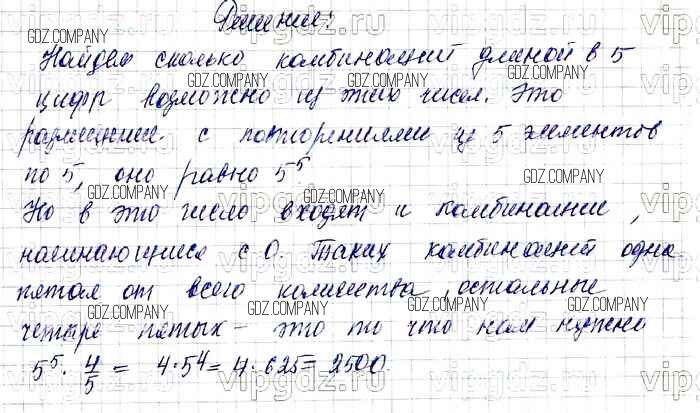 Решение:
Найдем сколько комбинаций длиной в 5
цифр возможно из этих чисел. Это
размещение с повторениями из 5 элементов
по 5, оно равно 5⁵
Но в это число входят и комбинации,
начинающиеся с 0. Таких комбинаций одна
пятая от всего количества, остальные
четыре пятых - это то что нам нужно
5⁵ · 4/5 = 4·5⁴ = 4·625 = 2500.
GDZ.COMPANY
vipgdz.ru